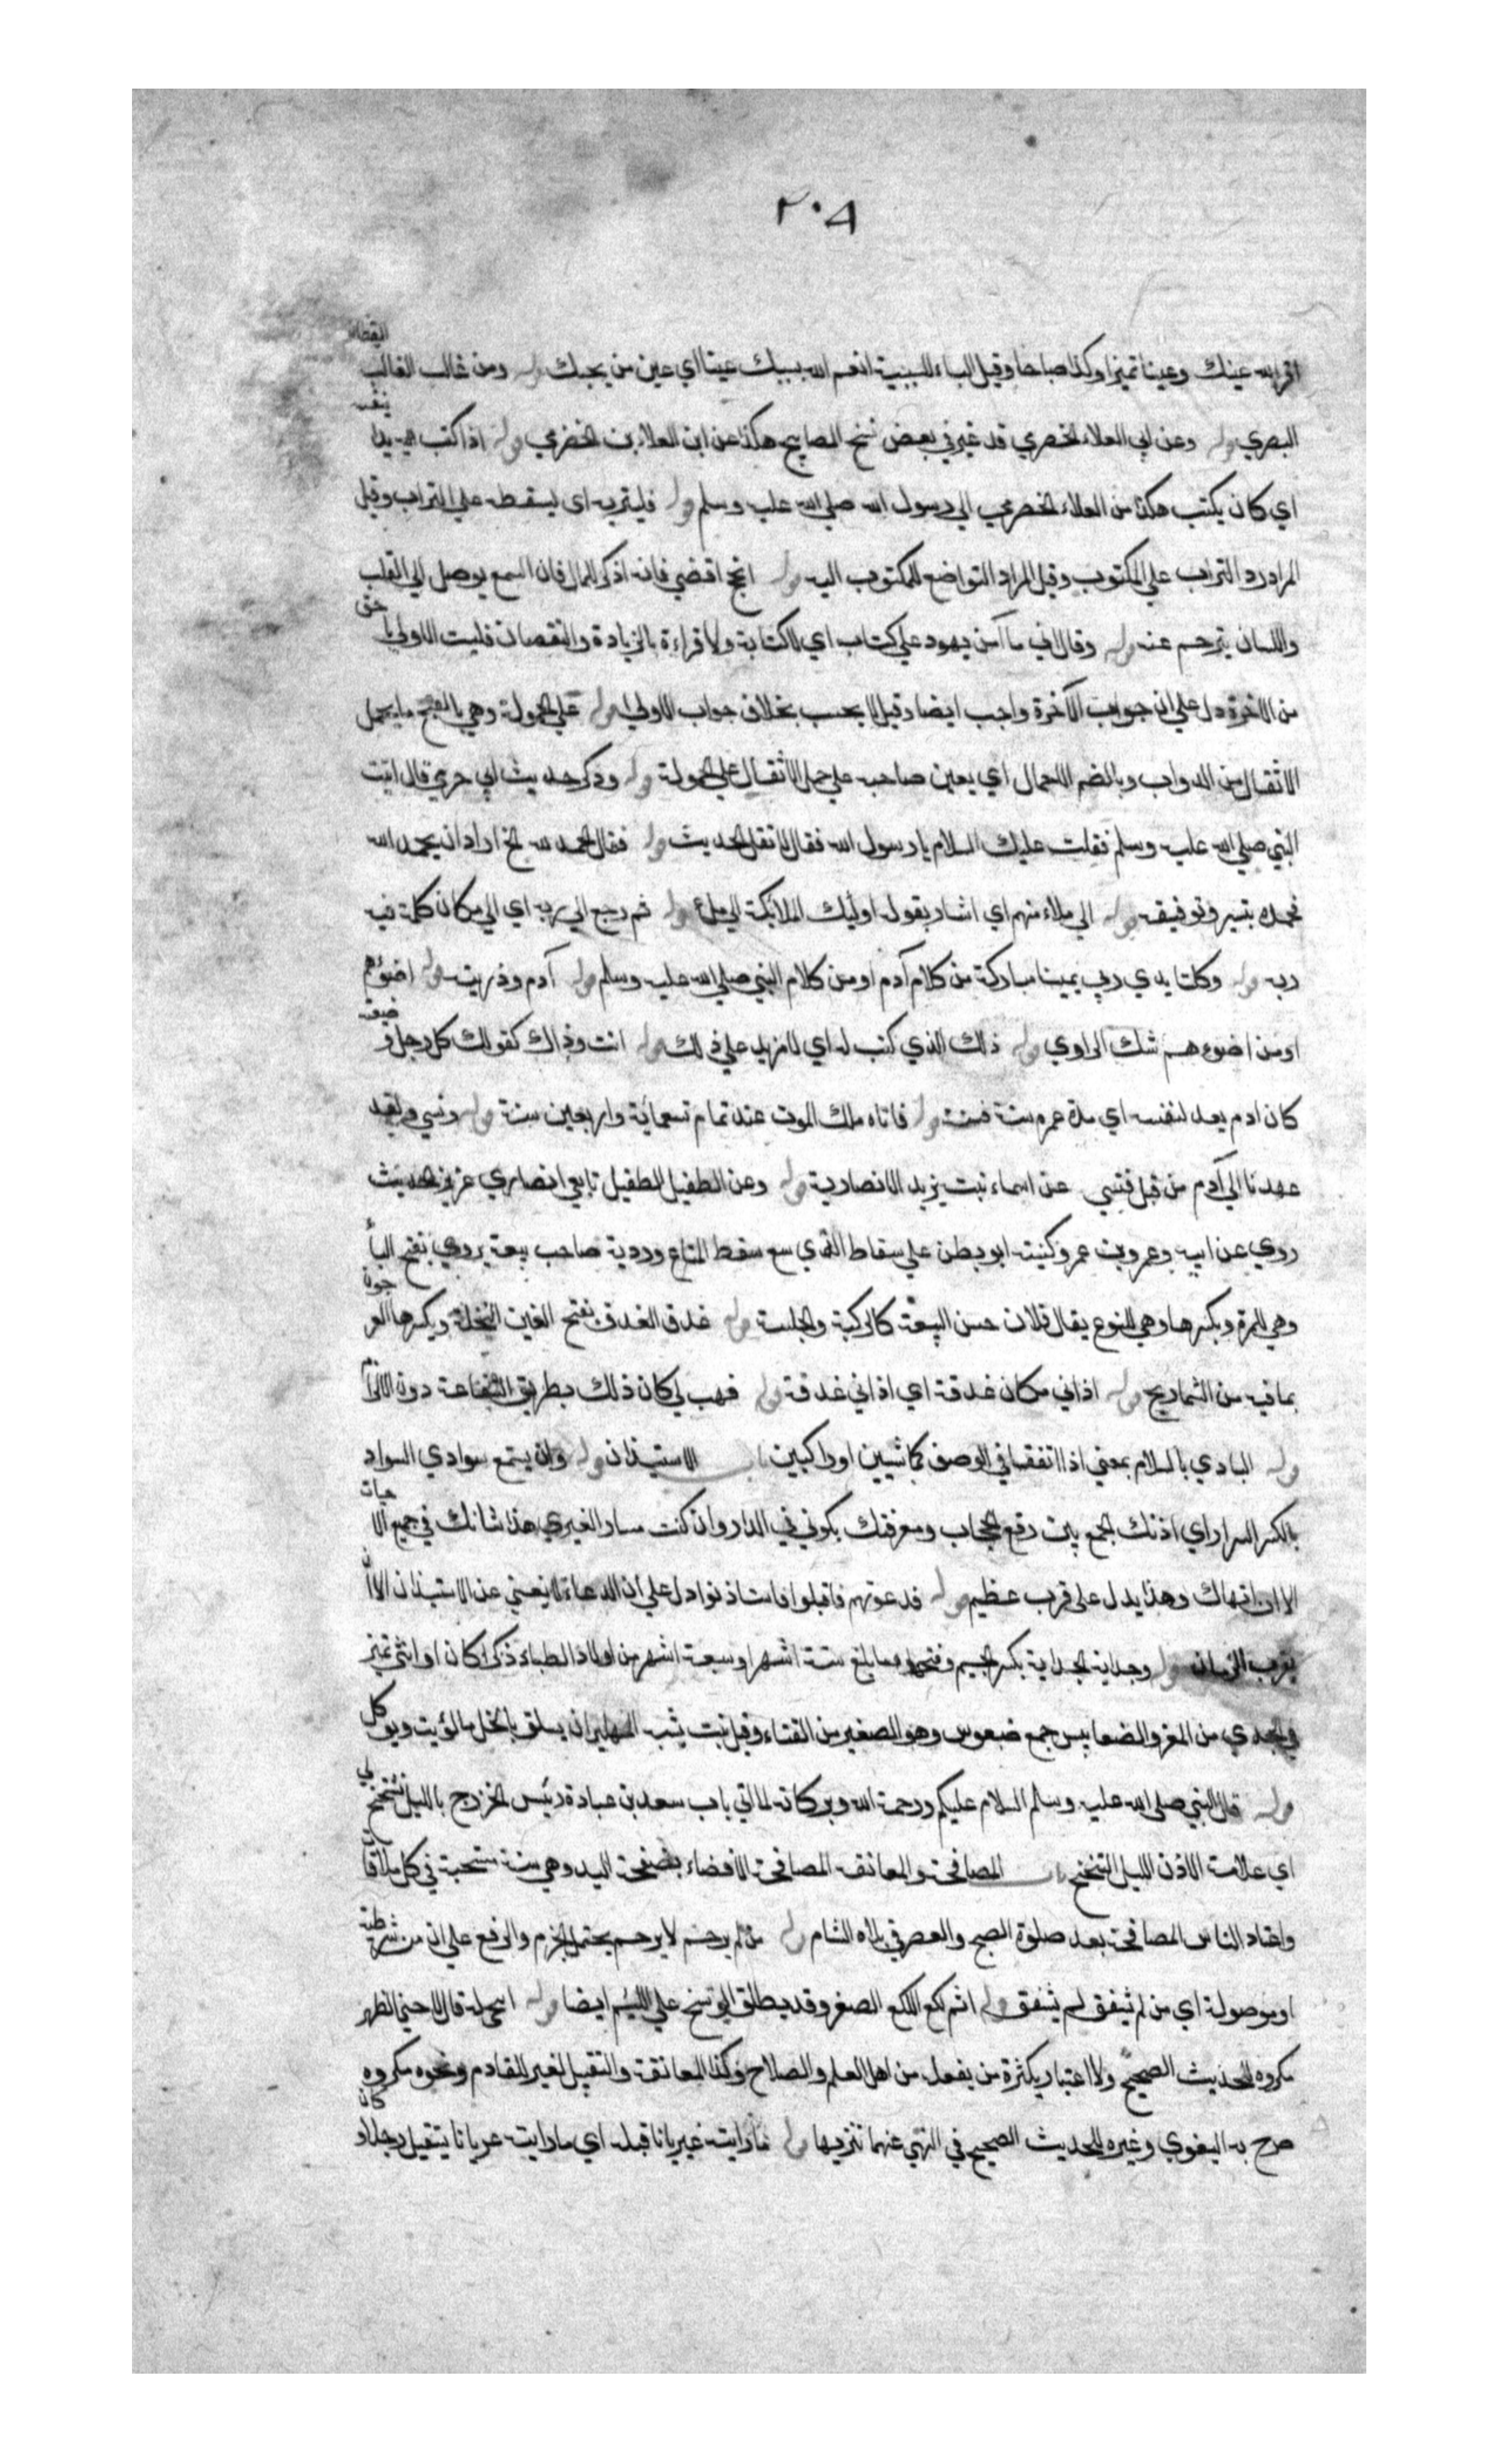 ٢٠٨
اقر الله عينك وعينا تميزا وكذا صباحا وقيل الباء للسببية انعم الله بسبك عينا اي عين من يحبك وله ومن غالب الغالب القطان
البصري وله وعن ابي العلاء الحضرمي قد غير في بعض نسخ المصابيح هكذا عن ابن العلاء بن الحضرمي وله اذا كتب بنفسه
اي كان يكتب هكذا من العلاء الحضرمي الي رسول الله صلي الله عليه وسلم وله فليتربه اي ليسقطه علي التراب وقيل
المراد رد التراب علي المكتوب وقيل المراد التواضع للمكتوب اليه وله انجح اقضي فانه اذكر للمال فان السمع يوصل الي القلب
واللسان يترجم عنه وله وقال اني ما آمن يهود علي كتاب اي لا كتابة ولا قراءة بالزيادة والنقصان فليست الاولي باحق
من الاخرة دل علي ان جواب الآخرة واجب ايضا وقيل لا يجب بخلاف جواب الاولي وله علي الحمولة وهي بالفتح ما يحمل
الاثقال من الدواب وبالضم الاحمال اي يعين صاحبه علي حمل الاثقال علي الحمولة وله وذكر حديث ابي جري قال اتيت
النبي صلي الله عليه وسلم فقلت عليك السلام يا رسول الله فقال لا تقل الحديث وله فقال الحمد لله الخ اراد ان يحمد الله
فحمده بتيسيره وتوفيقه وله الي ملاء منهم اي اشار بقوله اوليك الملائكة الي ملاء وله ثم رجع الي ربه اي الي مكان كلمه فيه
ربه وله وكلتا يدي ربي يمين مباركة من كلام آدم او من كلام النبي صلي الله عليه وسلم وله آدم وذريته وله اضوءهم
او من اضوءهم شك الراوي وله ذلك الذي كتب له اي لا مزيد علي ذلك وله انت وذاك كقولك كل رجل وضيعته
كان ادم يعد لنفسه اي مدة عمره سنة فسنة وله فاتاه ملك الموت عند تمام تسعمائة واربعين سنة وله ونسي ولقد
عهدنا الي آدم من قبل فنسي عن اسماء بنت يزيد الانصارية وله وعن الطفيل الطفيل تابعي انصاري عزيز الحديث
روي عن ابيه وعمر وبن عمر وكنيته ابو بطن علي سقاط الذي يبيع سقط المتاع ورديه صاحب بيعة يروي بفتح الباء
وهي للمرة وبكسرها وهي للنوع يقال فلان حسن البيعة كالركبة والجلسة وله غدق الغدق بفتح الغين النخلة وبكسرها العرجون
بما فيه من الشماريخ وله اذاني مكان غدقة اي اذاني غدقة وله فهب لي كان ذلك بطريق الشفاعة دون الالزام
وله البادي بالسلام بمعني اذا اتفقا في الوصف كماشيين او راكبين باب الاستيذان وله وان يستمع سوادي السواد
بالكسر السرار اي اذنك الجمع بين رفع الحجاب ومعرفتك بكوني في الدار وان كنت مسارا لغيري هذا شانك في جميع الاحيان
الا ان انهاك وهذا يدل علي قرب عظيم وله فدعوتهم فاقبلوا فاستاذنوا دل علي ان الدعاء لا يغني عن الاستيذان الا
بقرب الزمان وله وجداية الجداية بكسر الجيم وفتحها ما بلغ ستة اشهر او سبعة اشهر من اولاد الظباء ذكرا كان او انثي تميز
في الجدي من المعز والضغابيس جمع ضغبوس وهو الصغير من القثاء وقيل نبت يشبه الهليون يسلق بالخل والزيت ويوكل
وله قال النبي صلي الله عليه وسلم السلام عليكم ورحمة الله وبركاته لما اتي باب سعد بن عبادة رئيس الخزرج بالليل تنحنح لي
اي علامة الاذن الليل التنحنح باب المصافحة والمعانقة المصافحة الافضاء بصفحة اليد وهي سنة مستحبة في كل ملاقات
واعتاد الناس المصافحة بعد صلوة الصبح والعصر في بلاد الشام وله من لم يرحم لا يرحم يحتمل الجزم والرفع علي ان من شرطية
او موصولة اي من لم يشفق لم يشفق وله اثم لكع اللكع الصغير وقد يطلق الوسخ علي اللئيم ايضا وله اينحني له قال لا حني الظهر
مكروه للحديث الصحيح ولا اعتبار بكثرة من يفعله من اهل العلم والصلاح وكذا المعانقة والتقبيل لغير القادم ونحوه مكروه
صرح به البغوي وغيره للحديث الصحيح في النهي عنهما تنزيها وله ما رايته عريانا قبله اي ما رايته عريانا يستقبل رجلا وكان